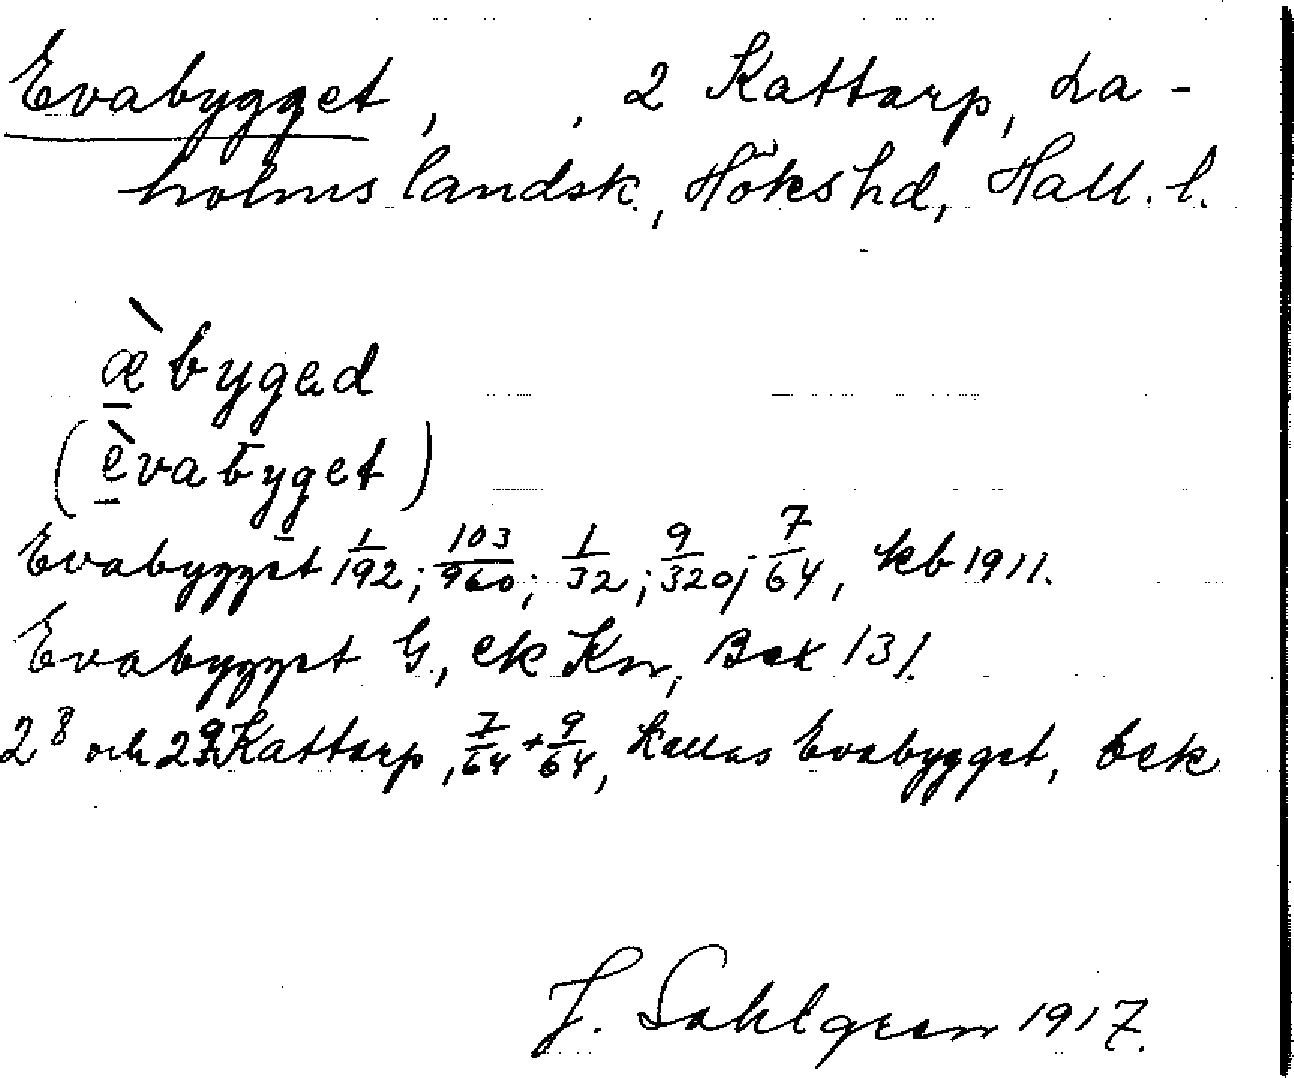 Evabygget, , 2 Kattarp, La-
holms landsk., Höks hd, Hall. l.
æ̀bygəd
(èvabyget)
Evabygget 1/192; 103/960; 1/32; 9/320; 7/64, kb 1911.
Evabygget G., ek Kn, Bex 131.
2⁸ och 2⁹ Kattarp, 7/64 + 9/64, kallas Evabygget, bek
J. Sahlgren 1917.